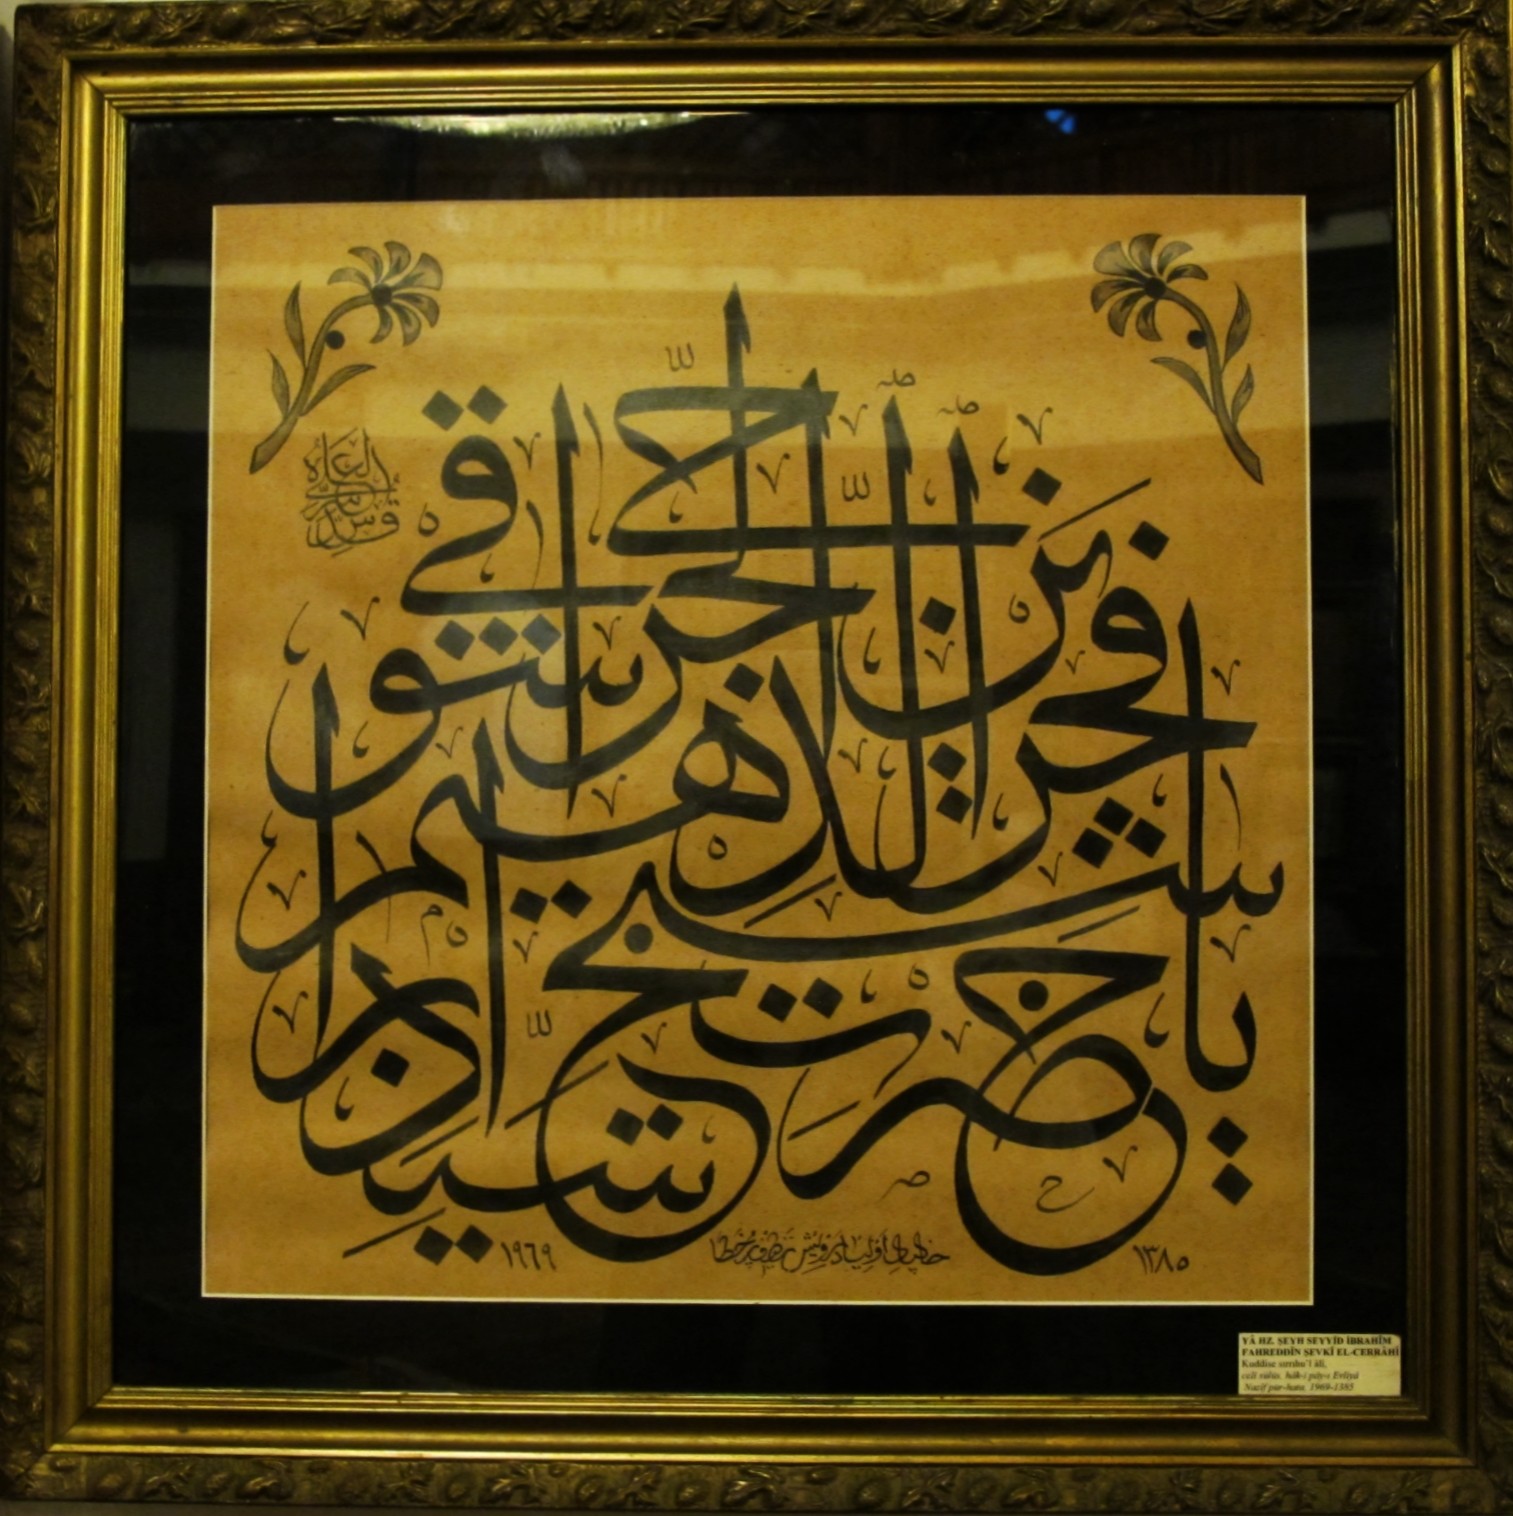 يا حضرت شيخ سيد ابراهيم فخر الدين شوقي الجراحي
قدس سره العالي
١٩٦٩
خاكپاي اوليا درويش نظيف پرخطا
١٣٨٥
YÂ HZ. ŞEYH SEYYİD İBRAHÎM
FAHREDDÎN ŞEVKÎ EL-CERRÂHÎ
Kuddise sırrıhu'l âlî,
celî sülüs, hâk-i pây-ı Evliyâ
Nazîf pür-hata, 1969-1385